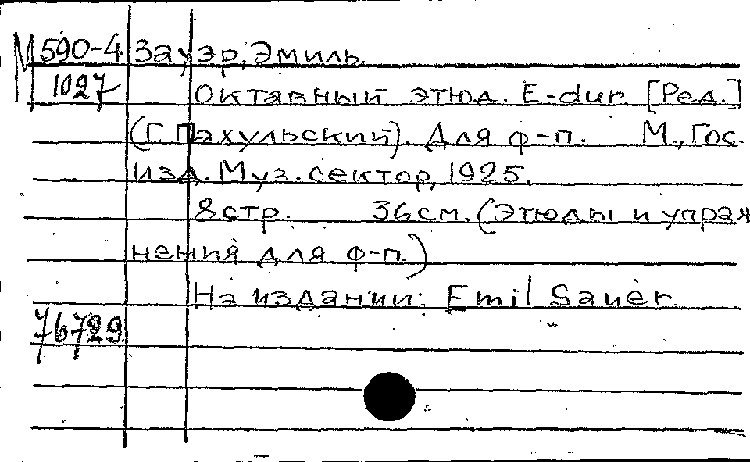 М 590-4 Зауэр, Эмиль
1027 Октавный этюд. E-dur. [Ред.]
(Г. Пахульский). Для ф-п. М., Гос.
изд. Муз. сектор, 1925.
8 стр. 36 см. (Этюды и упраж
нения для ф-п.)
На издании: Emil Sauer
76729